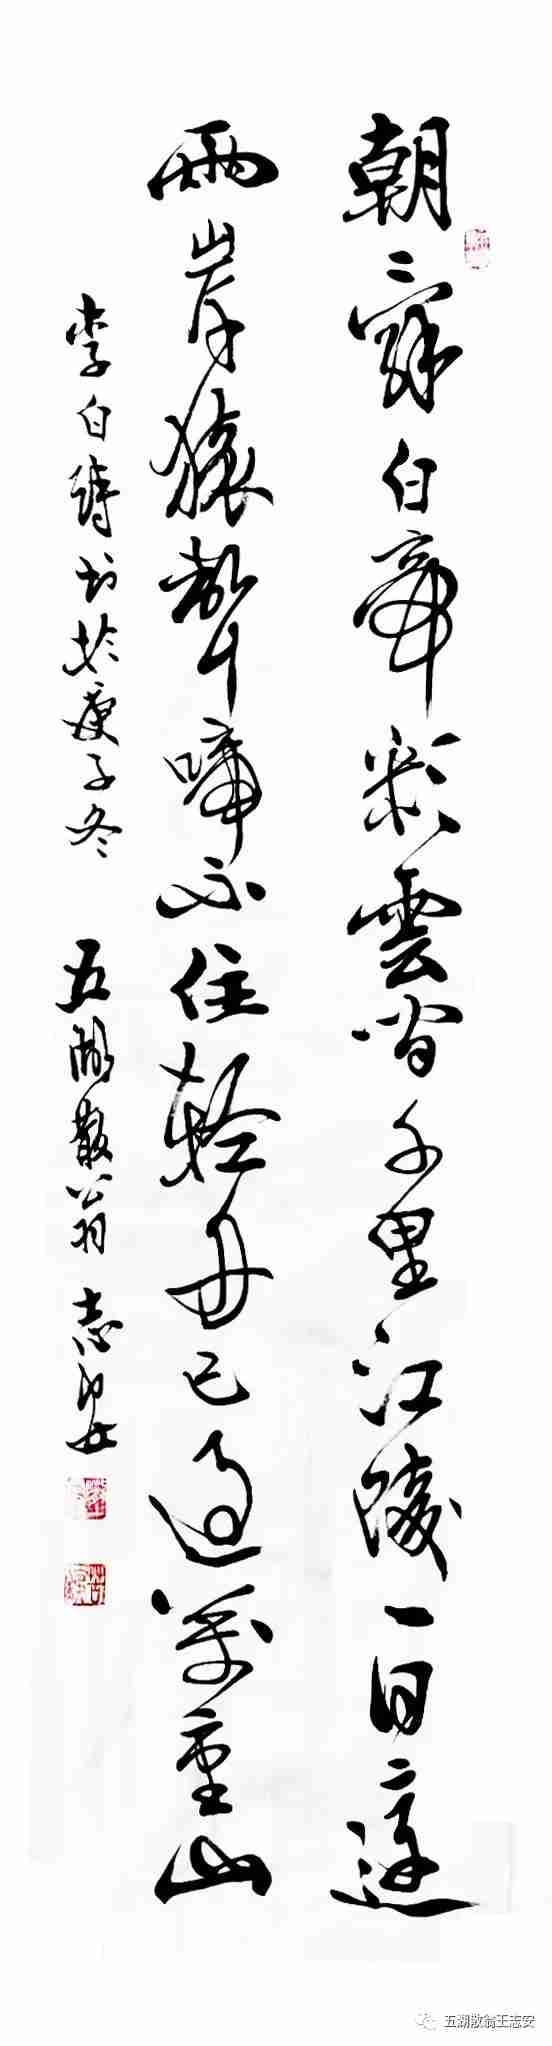 朝辭白帝彩雲間千里江陵一日還
兩岸猿聲啼不住輕舟已過萬重山
李白詩书於庚子冬 五湖散翁 志安
五湖散翁王志安